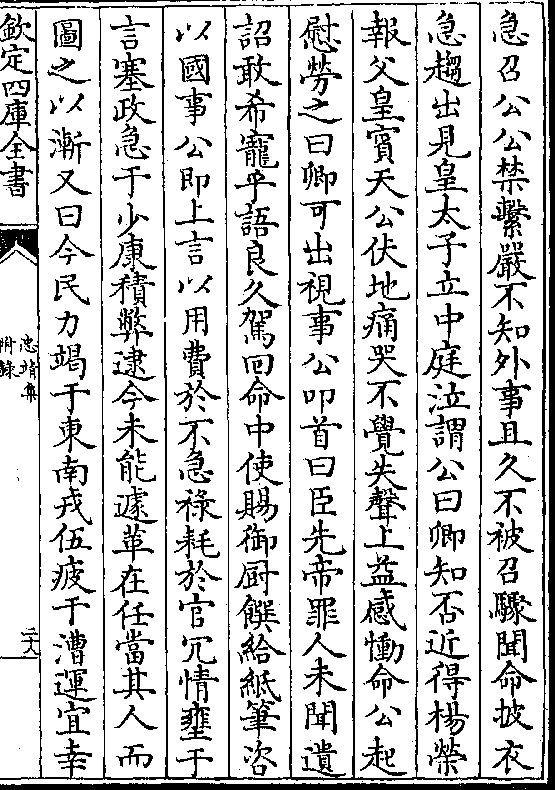 急召公公禁繫嚴不知外事且久不被召驟聞命披衣
急趨出見皇太子立中庭泣謂公曰卿知否近得楊榮
報父皇賓天公伏地痛哭不覺失聲上益感慟命公起
慰勞之曰卿可出視事公叩首曰臣先帝罪人未聞遺
詔敢希寵乎語良久駕回命中使賜御厨饌給紙筆咨
以國事公即上言以用費於不急祿耗於官冗情壅于
言塞政急于少康積弊逮今未能遽革在任當其人而
圖之以漸又曰今民力竭于東南戎伍疲于漕運宜幸
欽定四庫全書
忠靖集
附錄
二十八